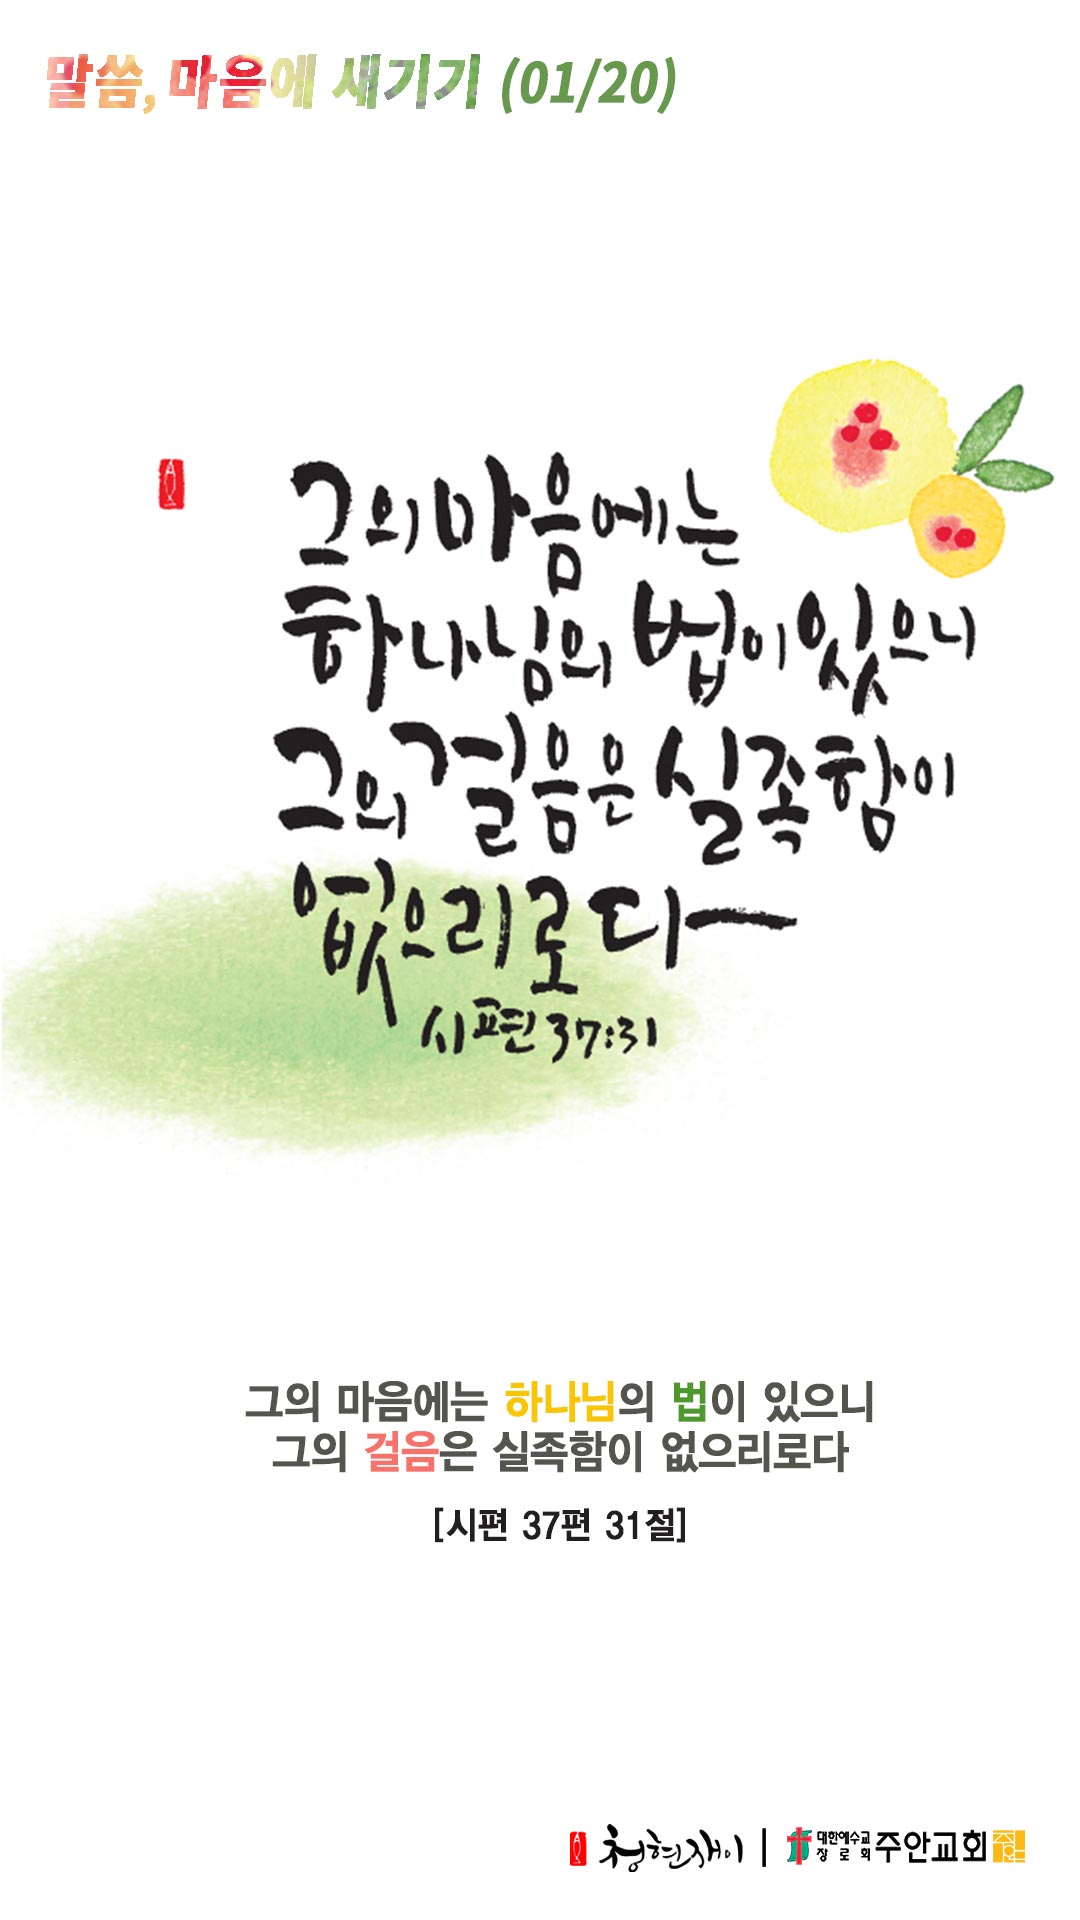 말씀, 마음에 새기기 (01/20)
그의 마음에는
하나님의 법이 있으니
그의 걸음은 실족함이
없으리로다
시편 37:31
그의 마음에는 하나님의 법이 있으니
그의 걸음은 실족함이 없으리로다
[시편 37편 31절]
청현재이 | 대한예수교 장로회 주안교회